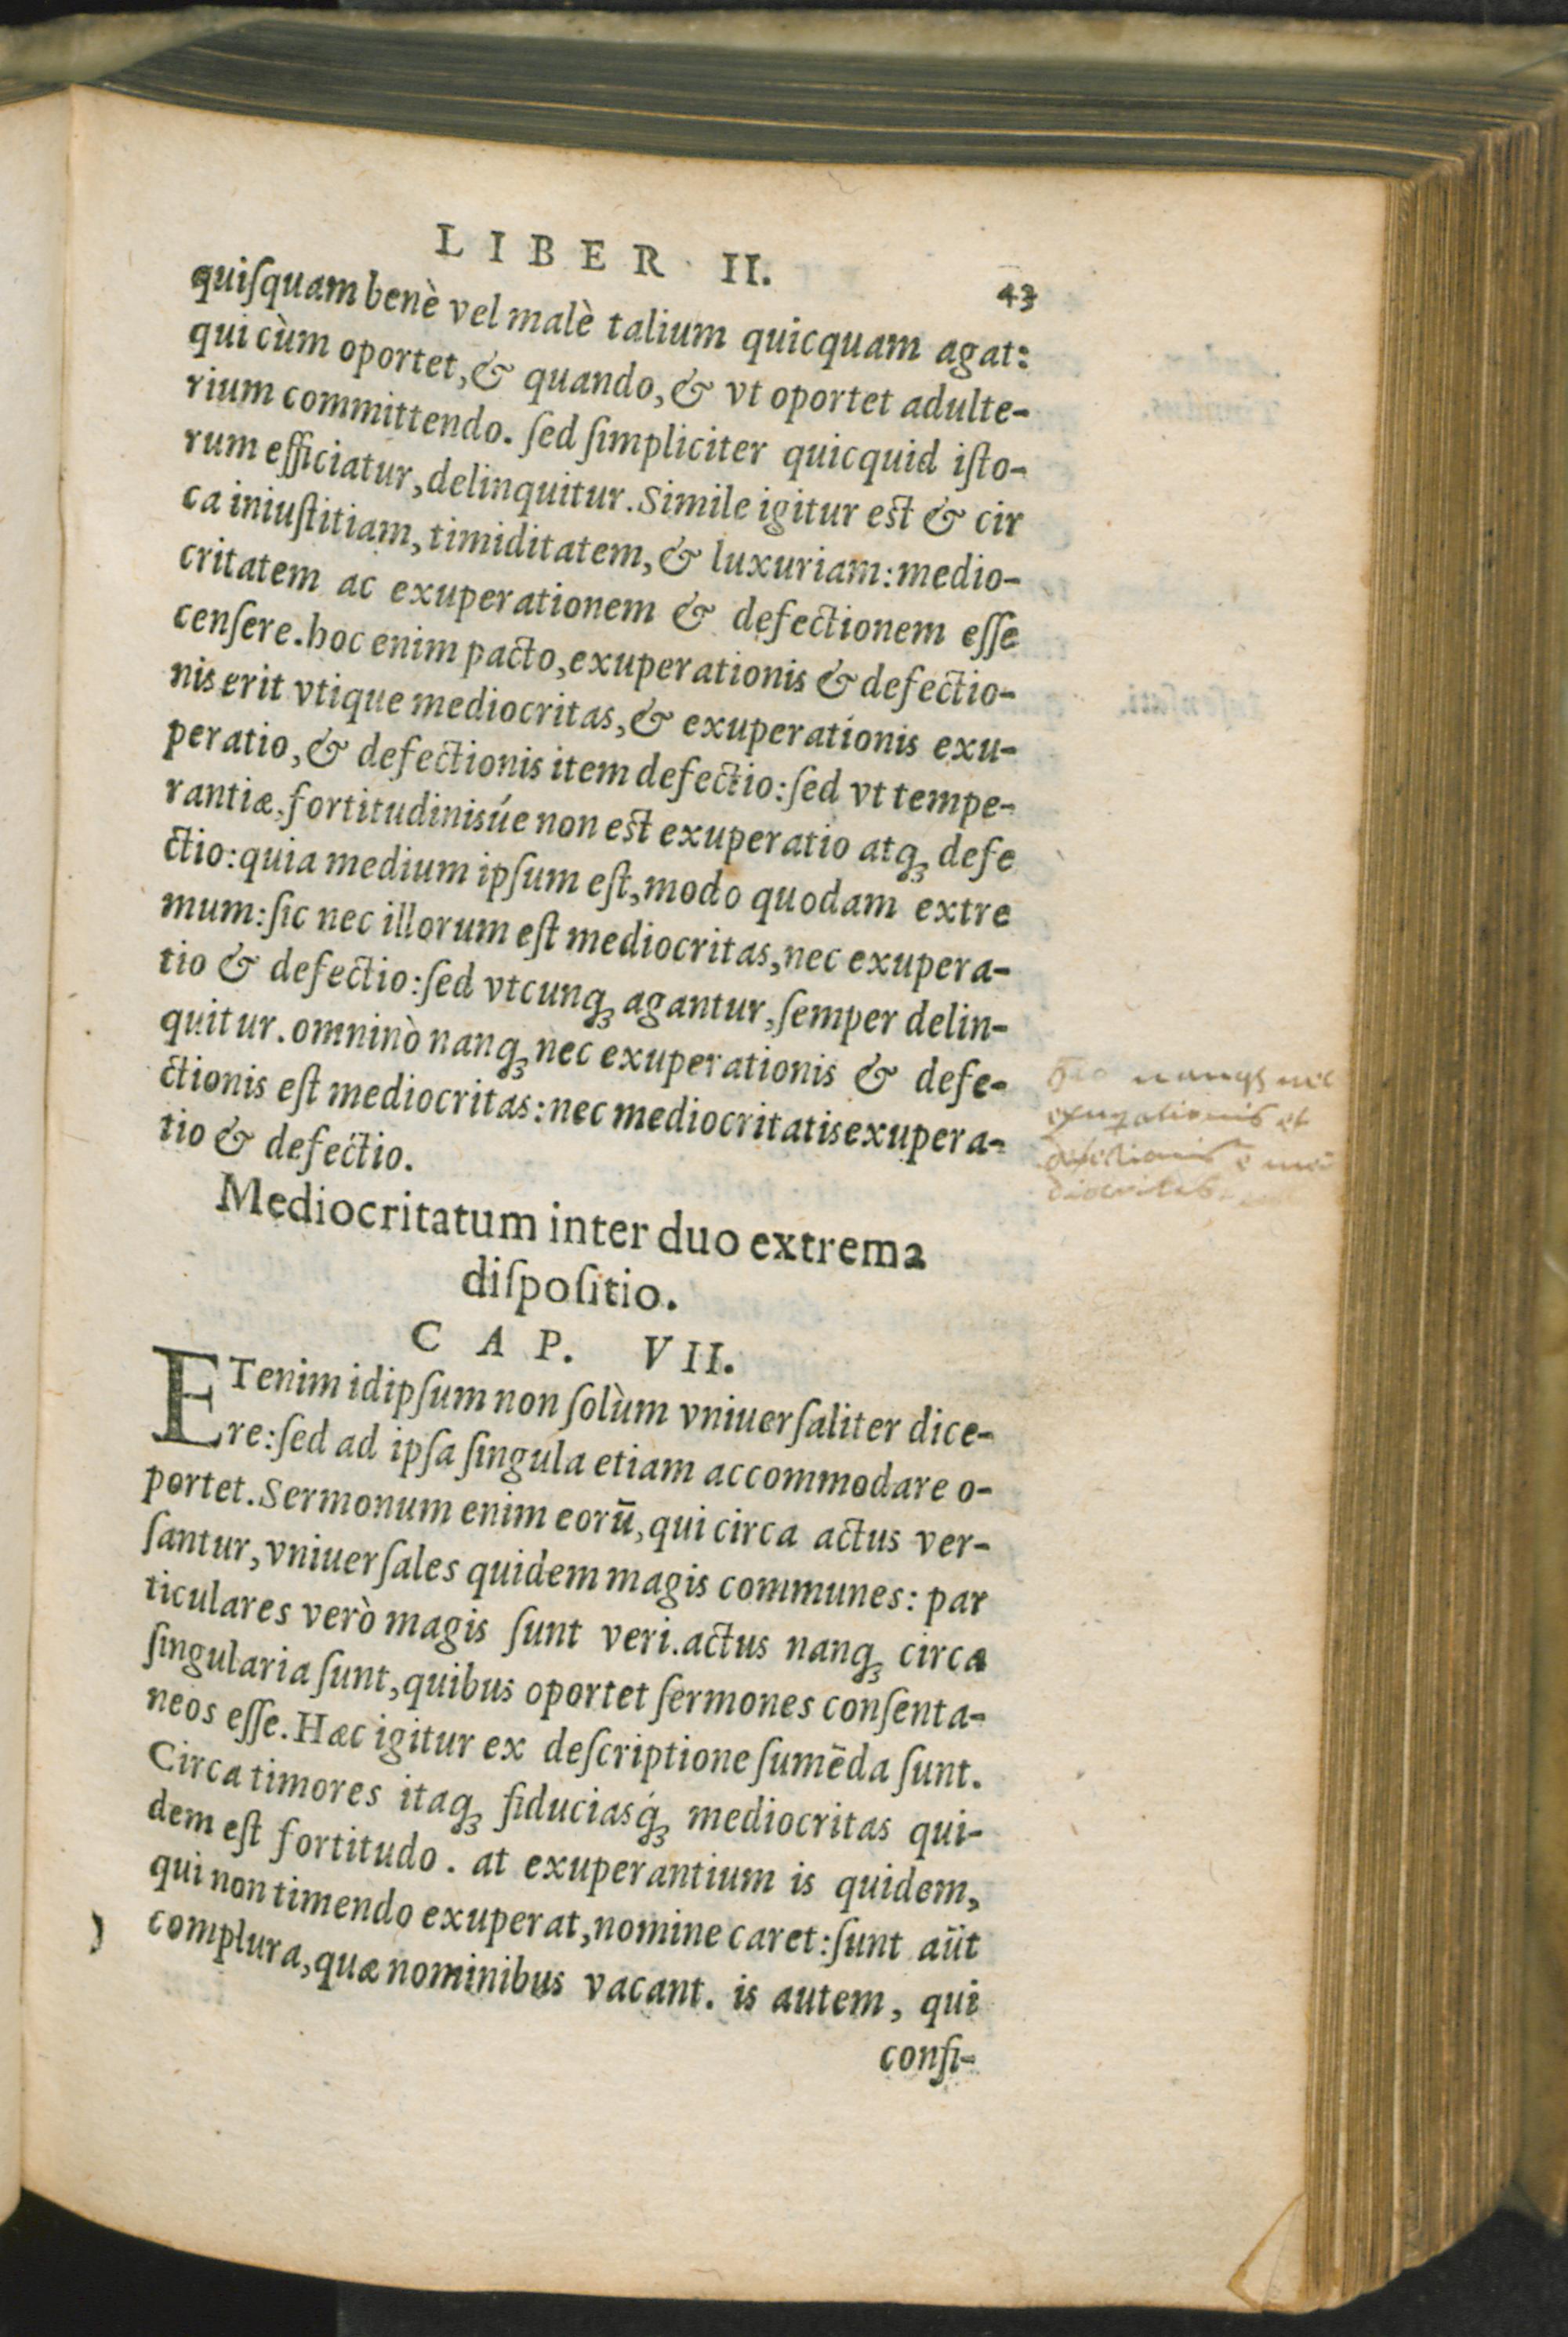 LIBER II. 43
quiſquam benè vel malè talium quicquam agat:
qui cùm oportet, & quando, & vt oportet adulte-
rium committendo. ſed ſimpliciter quicquid iſto-
rum efficiatur, delinquitur. Simile igitur est & cir
ca iniuſtitiam, timiditatem, & luxuriam: medio-
critatem ac exuperationem & defectionem eſſe
cenſere. hoc enim pacto, exuperationis & defectio-
nis erit vtique mediocritas, & exuperationis exu-
peratio, & defectionis item defectio: ſed vt tempe-
rantiæ, fortitudinisúe non est exuperatio atq; defe
ctio: quia medium ipſum eſt, modo quodam extre
mum: ſic nec illorum eſt mediocritas, nec exupera-
tio & defectio: ſed vtcunq; agantur, ſemper delin-
quitur. omninò nanq; nec exuperationis & defe-
ctionis eſt mediocritas: nec mediocritatis exupera-
tio & defectio.
nanq; nec
et
Mediocritatum inter duo extrema
diſpoſitio.
CAP. VII.
ETenim idipſum non ſolùm vniuerſaliter dice-
re: ſed ad ipſa ſingula etiam accommodare o-
portet. Sermonum enim eorū, qui circa actus ver-
ſantur, vniuerſales quidem magis communes: par
ticulares verò magis ſunt veri. actus nanq; circa
ſingularia ſunt, quibus oportet ſermones conſenta-
neos eſſe. Hæc igitur ex deſcriptione ſumēda ſunt.
Circa timores itaq; fiduciasq́; mediocritas qui-
dem eſt fortitudo. at exuperantium is quidem,
qui non timendo exuperat, nomine caret: ſunt aūt
complura, quæ nominibus vacant. is autem, qui
confi-